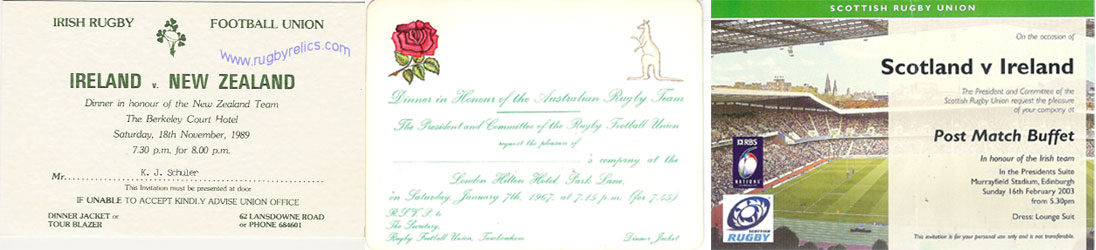 IRISH RUGBY FOOTBALL UNION
www.rugbyrelics.com
IRELAND v. NEW ZEALAND
Dinner in honour of the New Zealand Team
The Berkeley Court Hotel
Saturday, 18th November, 1989
7.30 p.m. for 8.00 p.m.
Mr. K. J. Schuler
This Invitation must be presented at door
IF UNABLE TO ACCEPT KINDLY ADVISE UNION OFFICE
DINNER JACKET or
TOUR BLAZER
62 LANSDOWNE ROAD
or PHONE 684601
Dinner in Honour of the Australian Rugby Team
The President and Committee of the Rugby Football Union
request the pleasure of
's company at the
London Hilton Hotel, Park Lane,
on Saturday, January 7th, 1967, at 7.15 p.m. (for 7.45)
R.S.V.P. to
The Secretary,
Rugby Football Union, Twickenham
Dinner Jacket
SCOTTISH RUGBY UNION
On the occasion of
Scotland v Ireland
The President and Committee of the
Scottish Rugby Union request the pleasure
of your company at
Post Match Buffet
In honour of the Irish team
In the Presidents Suite
Murrayfield Stadium, Edinburgh
Sunday 16th February 2003
from 5.30pm
Dress: Lounge Suit
This invitation is for your personal use only and is not transferable.
RBS
6
NATIONS
SCOTTISH
RUGBY